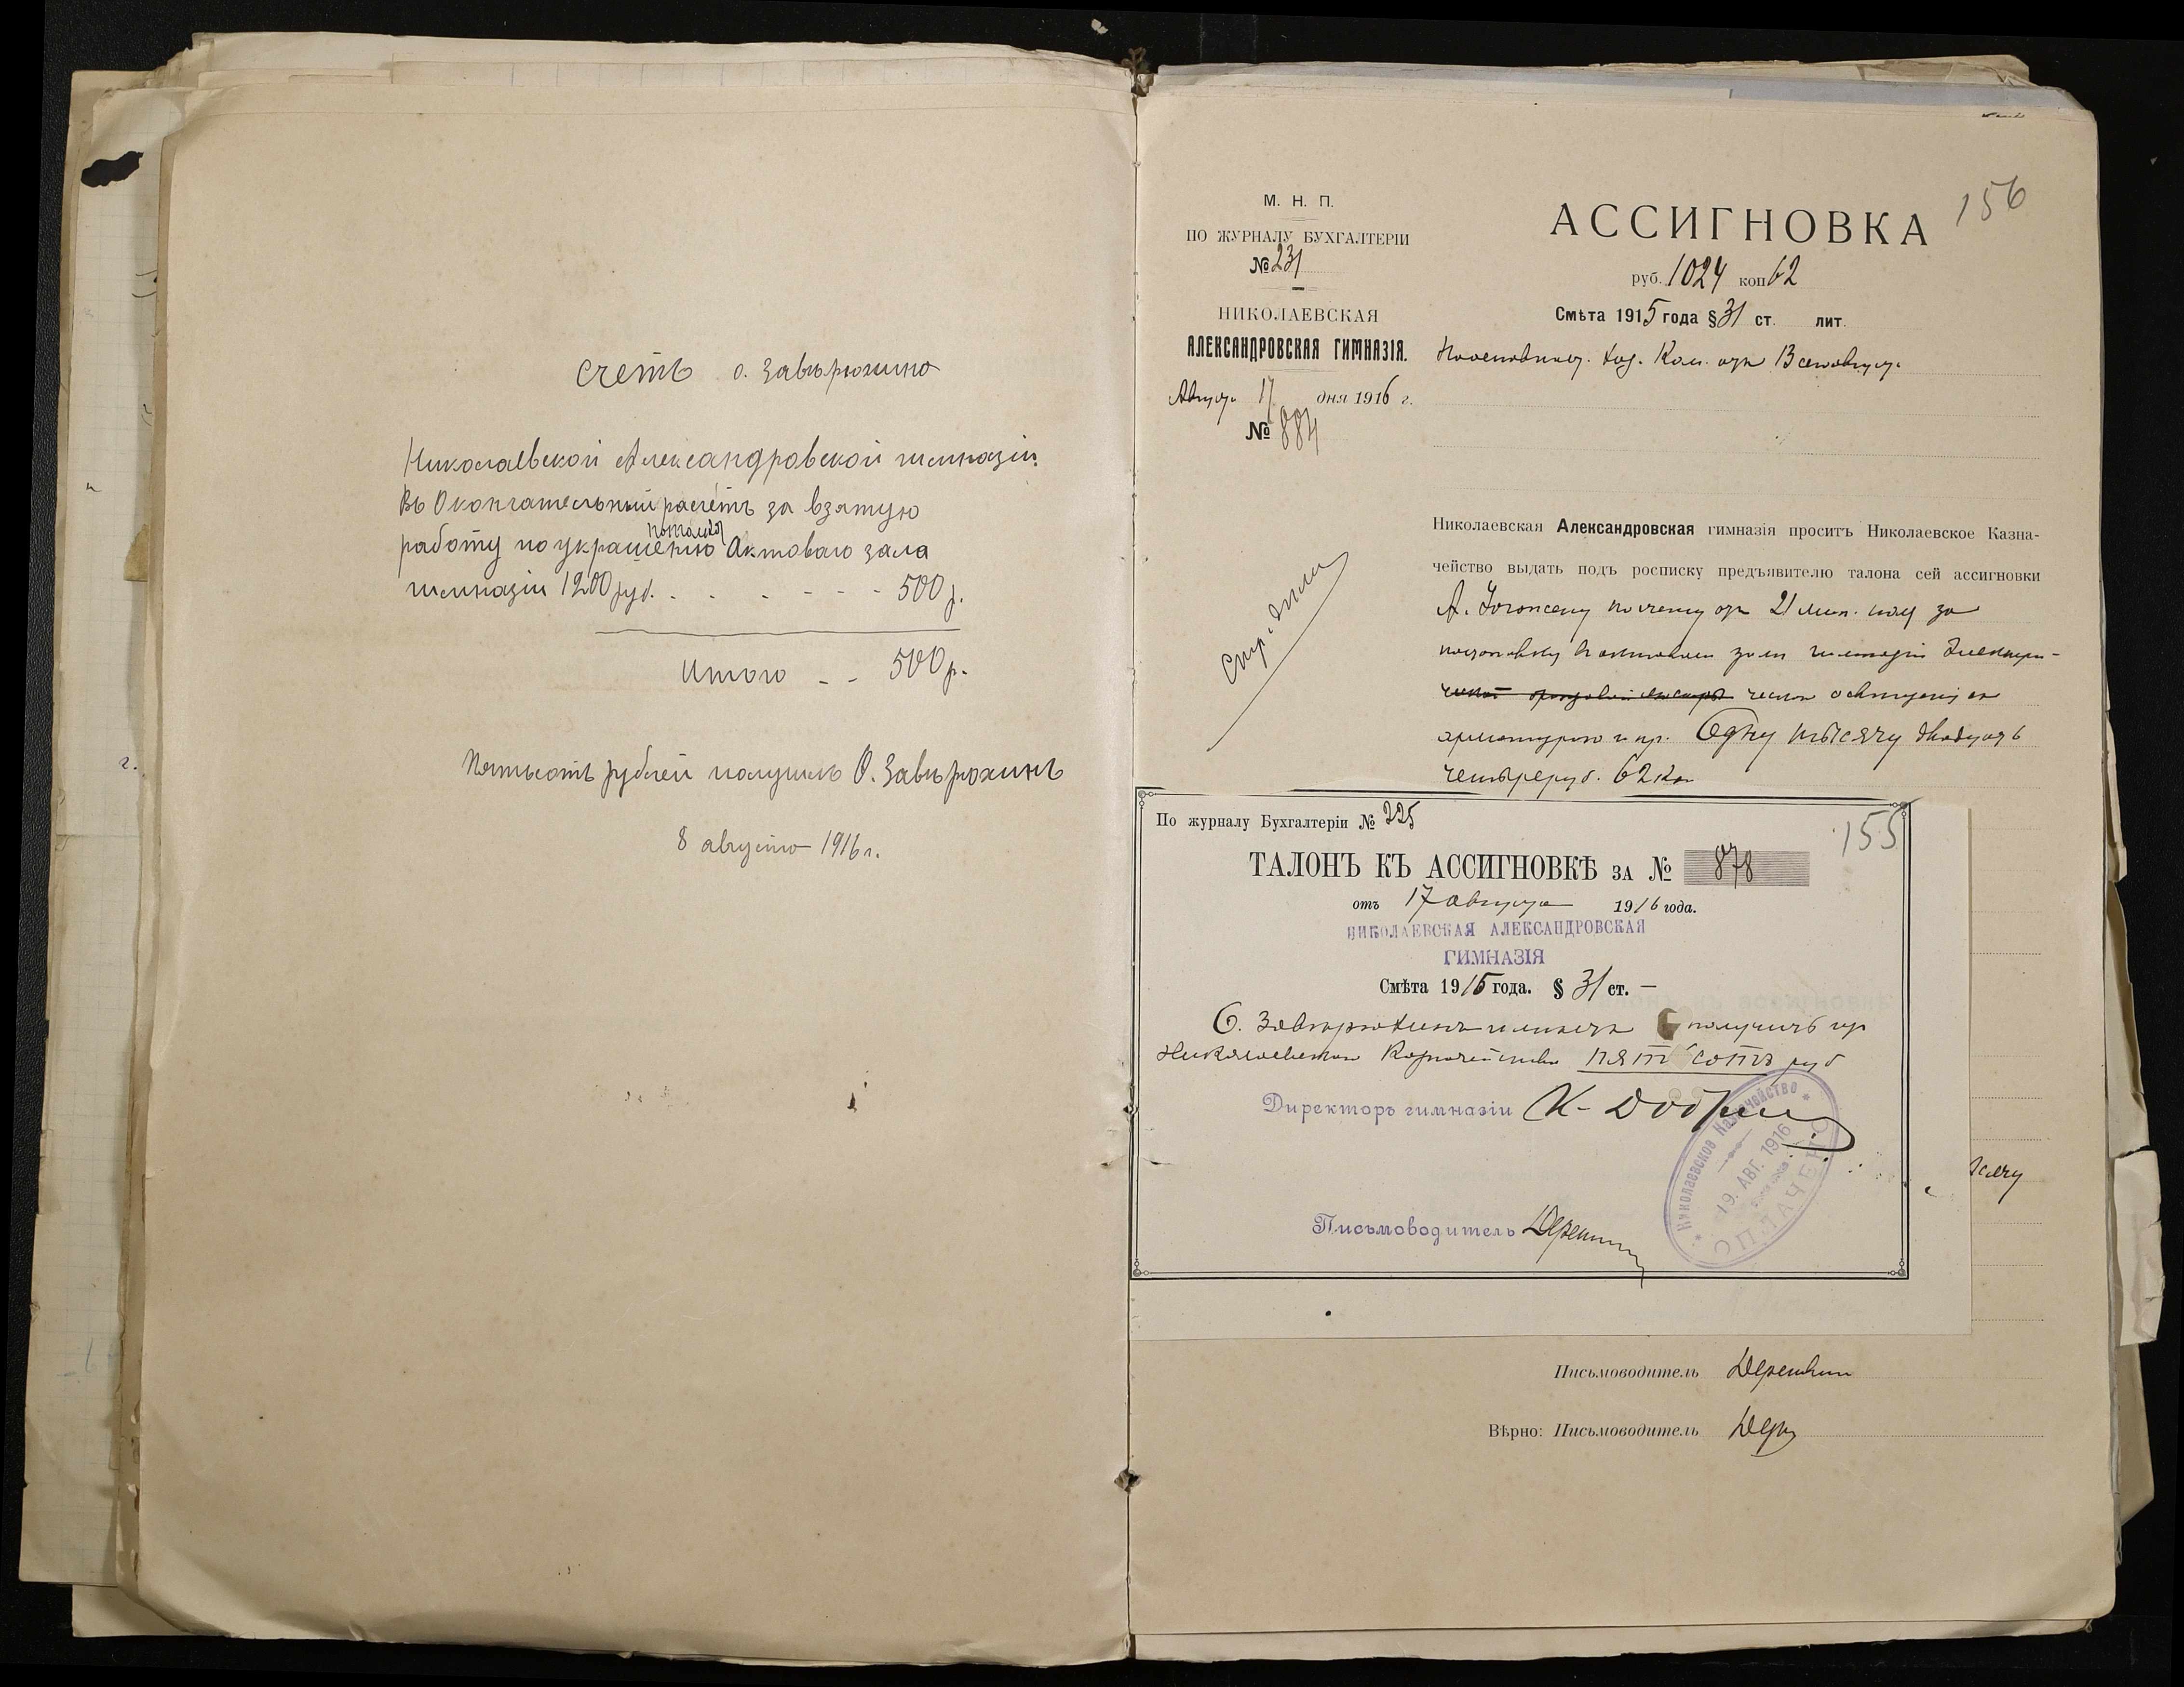 Счетъ О. Завѣрюхина
Николаевской Александровской гимназіи
Въ Окончательный расчетъ за взятую
потолка
работу по украшенію Актоваго зала
гимназіи 1200 руб. - - - - - - 500 р.
Итого - - 500 р.
Пятьсотъ рублей получилъ О. Завѣрюхинъ
8 августа 1916 г.
г.
М. Н. П.
ПО ЖУРНАЛУ БУХГАЛТЕРІИ
№ 231
НИКОЛАЕВСКАЯ
АЛЕКСАНДРОВСКАЯ ГИМНАЗІЯ.
Августа 17 дня 1916 г.
№ 884
156
АССИГНОВКА
руб. 1024 коп 62
Смѣта 1915 года § 31 ст. лит.
Николаевская Александровская гимназія проситъ Николаевское Казна-
чейство выдать подъ росписку предъявителю талона сей ассигновки
А. по счету отъ 21 за
зала гимназіи электри-
арматурою и пр. Одну тысячу двадцать
четыре руб. 62 коп
По журналу Бухгалтеріи № 225
155
ТАЛОНЪ КЪ АССИГНОВКѢ ЗА № 878
отъ 17 августа 1916 года.
НИКОЛАЕВСКАЯ АЛЕКСАНДРОВСКАЯ
ГИМНАЗІЯ
Смѣта 1915 года. § 31 ст. —
О. Завѣрюхинъ имѣетъ получить изъ
Николаевского Казначейства пятьсотъ руб
Директоръ гимназіи
Николаевское Казначейство
19. АВГ. 1916
ОПЛАЧЕНО
Письмоводитель
сячу
Письмоводитель
Вѣрно: Письмоводитель